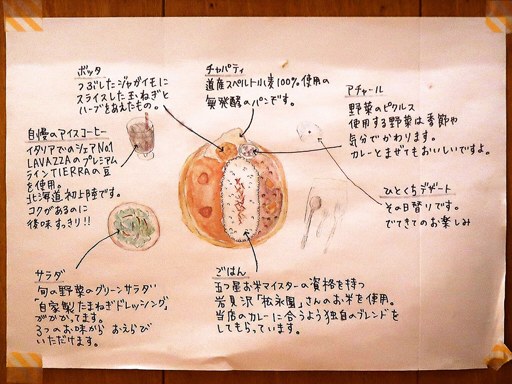 ボッタ
つぶしたジャガイモに
スライスした玉ねぎと
ハーブをあえたもの。
チャパティ
道産スペルト小麦100%使用の
無発酵のパンです。
アチャール
野菜のピクルス
使用する野菜は季節や
気分でかわります。
カレーとまぜてもおいしいですよ。
自慢のアイスコーヒー
イタリアでのシェアNo.1
LAVAZZAのプレミアム
ラインTIERRAの豆
を使用。
北海道初上陸です。
コクがあるのに
後味すっきり!!
ひとくちデザート
その日替りです。
でてきてのお楽しみ
サラダ
旬の野菜のグリーンサラダ
「自家製たまねぎドレッシング」
がかかってます。
3つのお味から おえらび
いただけます。
ごはん
五つ星お米マイスターの資格を持つ
岩見沢「松永園」さんのお米を使用。
当店のカレーに合うよう独自のブレンドを
してもらっています。